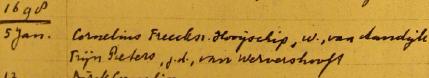 1698
5 Jan. Cornelius Freeksz. Hooijschip, w., van Aandijk
Trijn Pieters, j.d., van Wervershooff